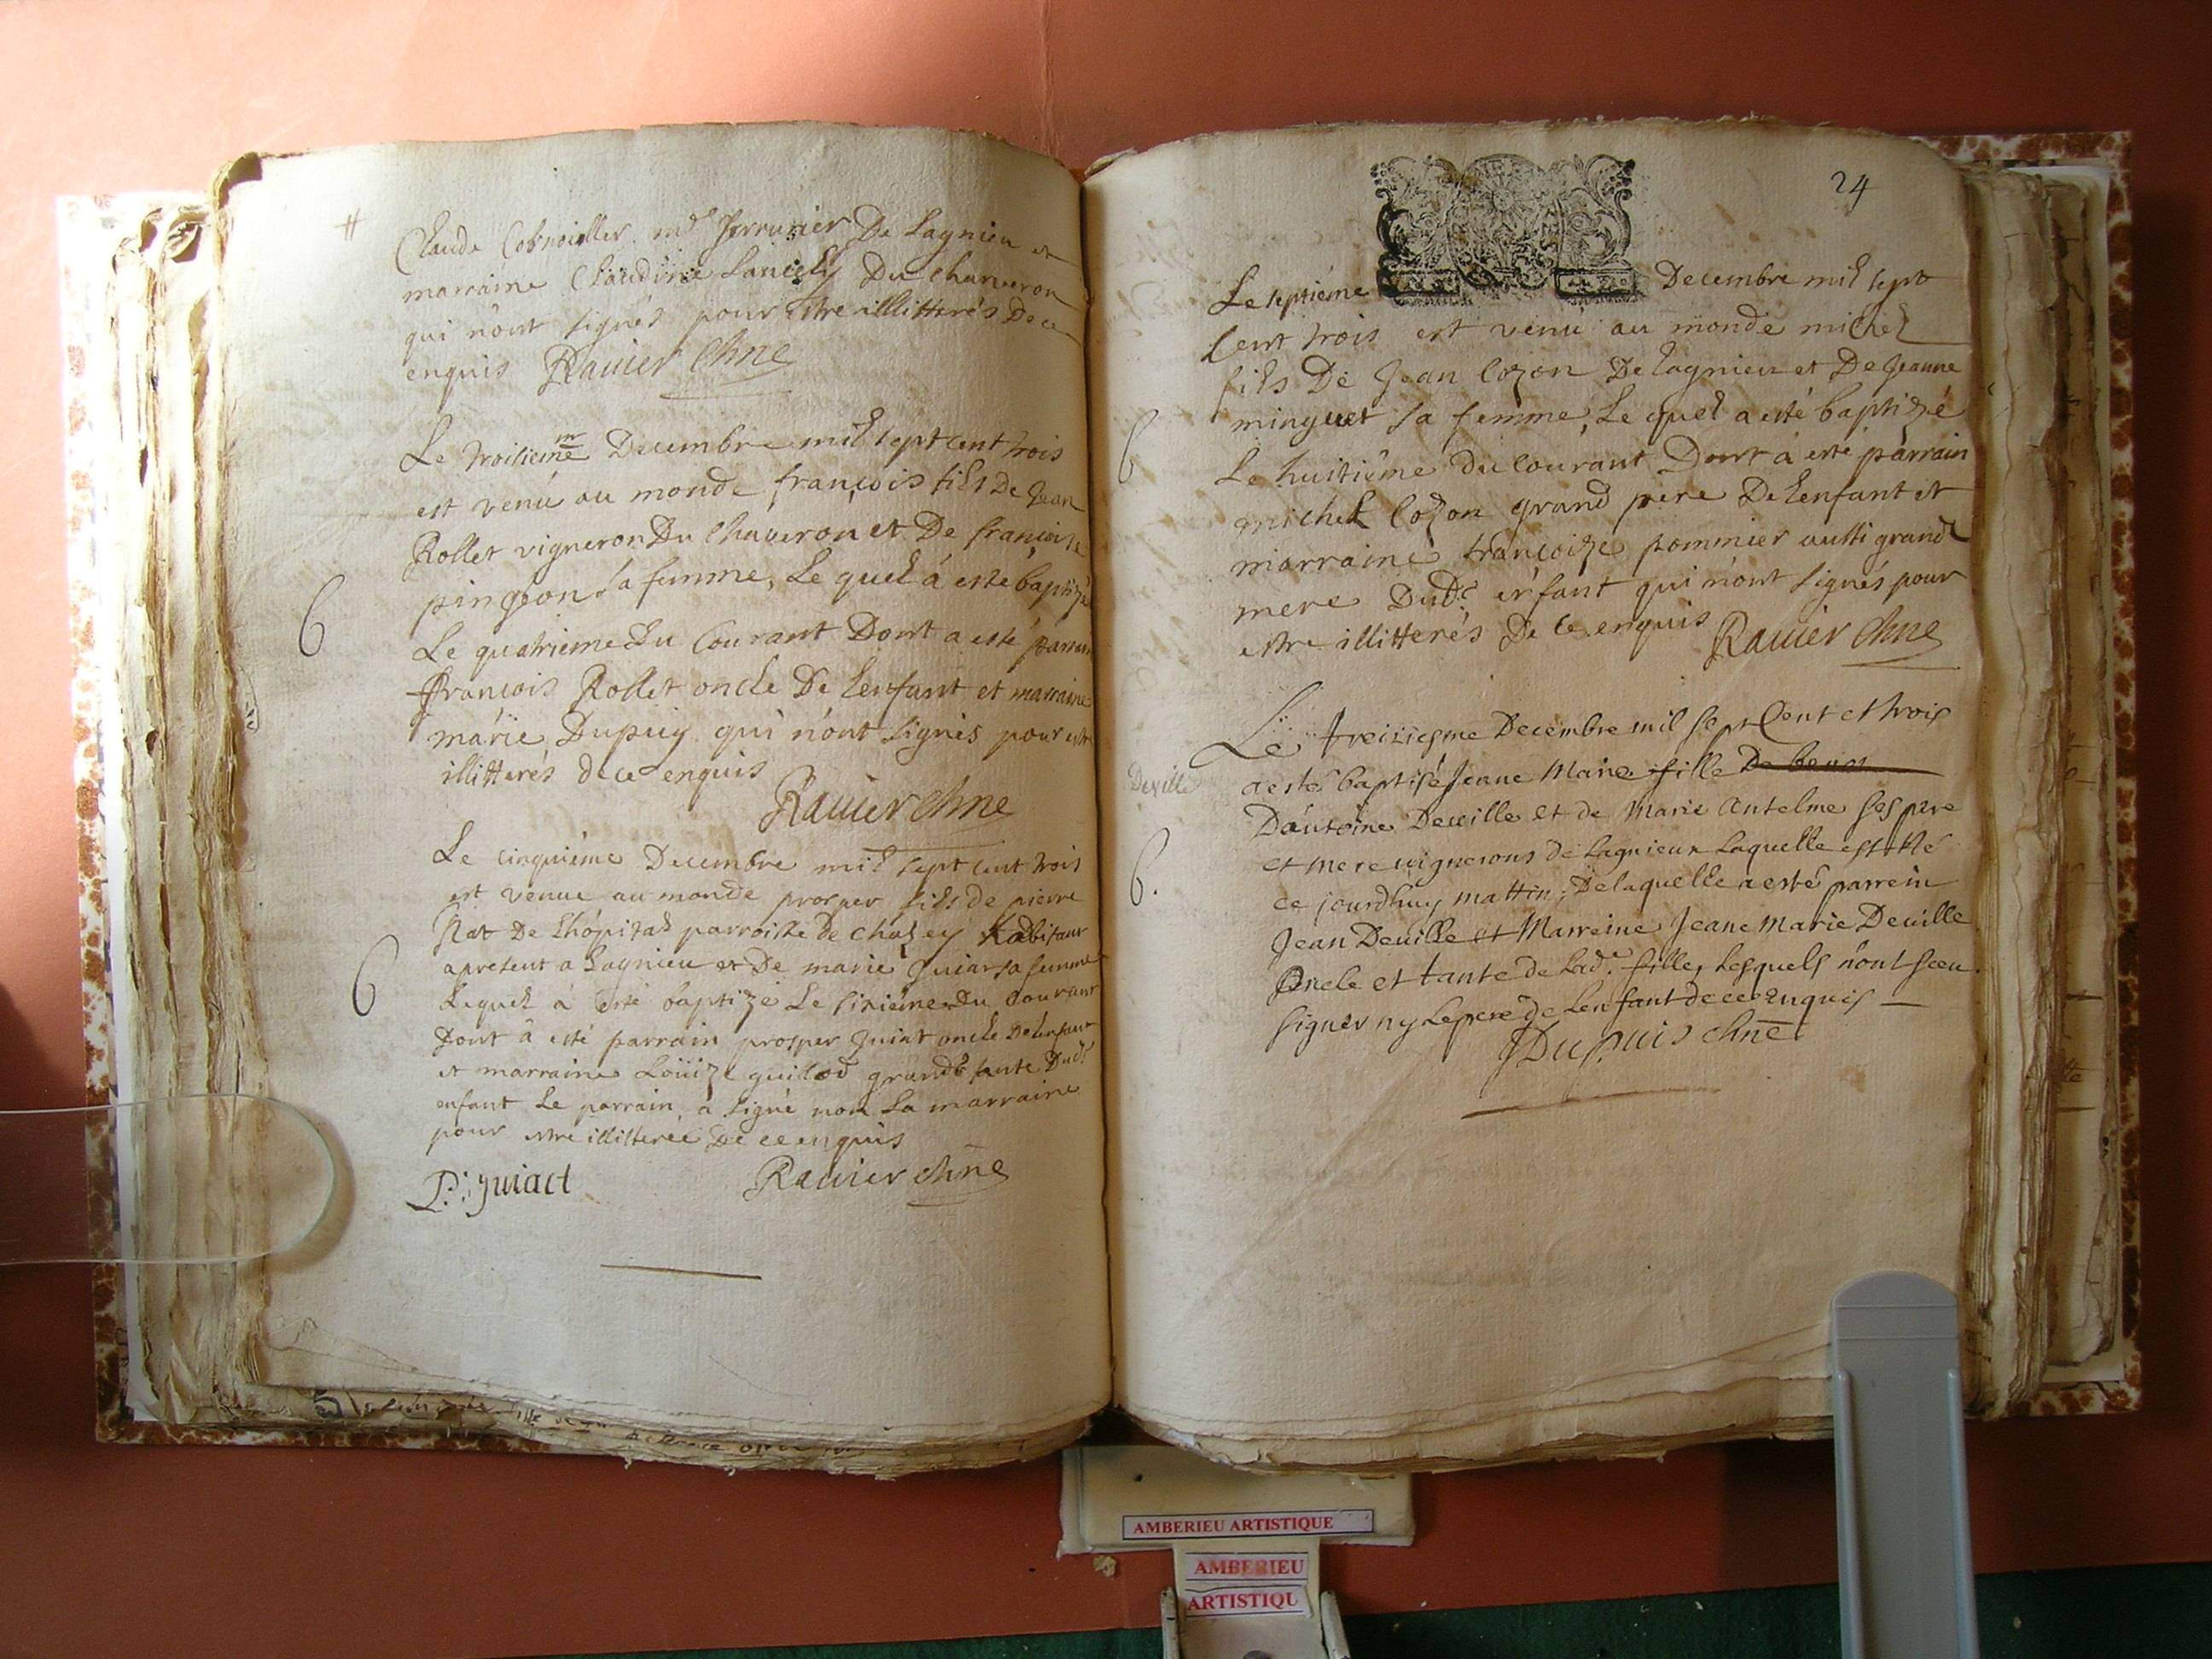 Claude Cornoiller md serrurier De Lagnieu et
marraine Claudine Lancely Du Chanveron
qui n'ont signés pour estre illitterés De ce
enquis Rauier Chne
Le troisieme Decembre mil sept cent trois
est venu au monde françois fils De Jean
Rollet vigneron Du Chaveron et De françoise
pingeon sa femme, Le quel à esté baptizé
Le quatrieme du Courant Dont a esté parrain
françois Rollet oncle De Lenfant et marraine
marie Dupuy qui n'ont signés pour estre
illitterés de ce enquis
Rauier Chne
Le cinquieme Decembre mil sept cent trois
est venue au monde prosper fils de pierre
Nat De Lhôpital parroisse de Chazey habitant
apresent a Lagnieu et De marie Guiar sa femme
Lequel à esté baptizé Le sixieme Du Courant
Dont à esté parrain prosper Guiat oncle De Lenfant
et marraine Loüize guilod grande tante Dudt
enfant Le parrain a signé non La marraine
pour estre illitterée De ce enquis
P. guiact Rauier Chne
6
6
24
Le septième Decembre mil sept
Cent trois est venu au monde michel
fils De Jean Cozon De Lagnieu et De Jeanne
minguet sa femme, Le quel a esté baptizé
Le huitième du Courant Dont à esté parrain
michel Cozon grand pere De Lenfant et
marraine françoize pommier aussi grand
mere Dudt enfant qui n'ont signés pour
estre illitterés De Ce enquis Rauier Chne
6
Le treiziesme Decembre mil sept Cent et trois
a esté baptisé Jeane Marie fille De
D'antoine Deuille et de Marie Antelme ses pere
et mere uignerons de Lagnieux Laquelle est née
ce jourdhuy mattin, De laquelle a esté parrein
Jean Deuille et Marreine Jeane Marie Deuille
oncle et tante de Lade. fille, Lesquels n'ont sceu
signer ny Le pere de Lenfant de ce enquis
JDupuis Chne
Deville
6.
AMBERIEU ARTISTIQUE
AMBERIEU
ARTISTIQU